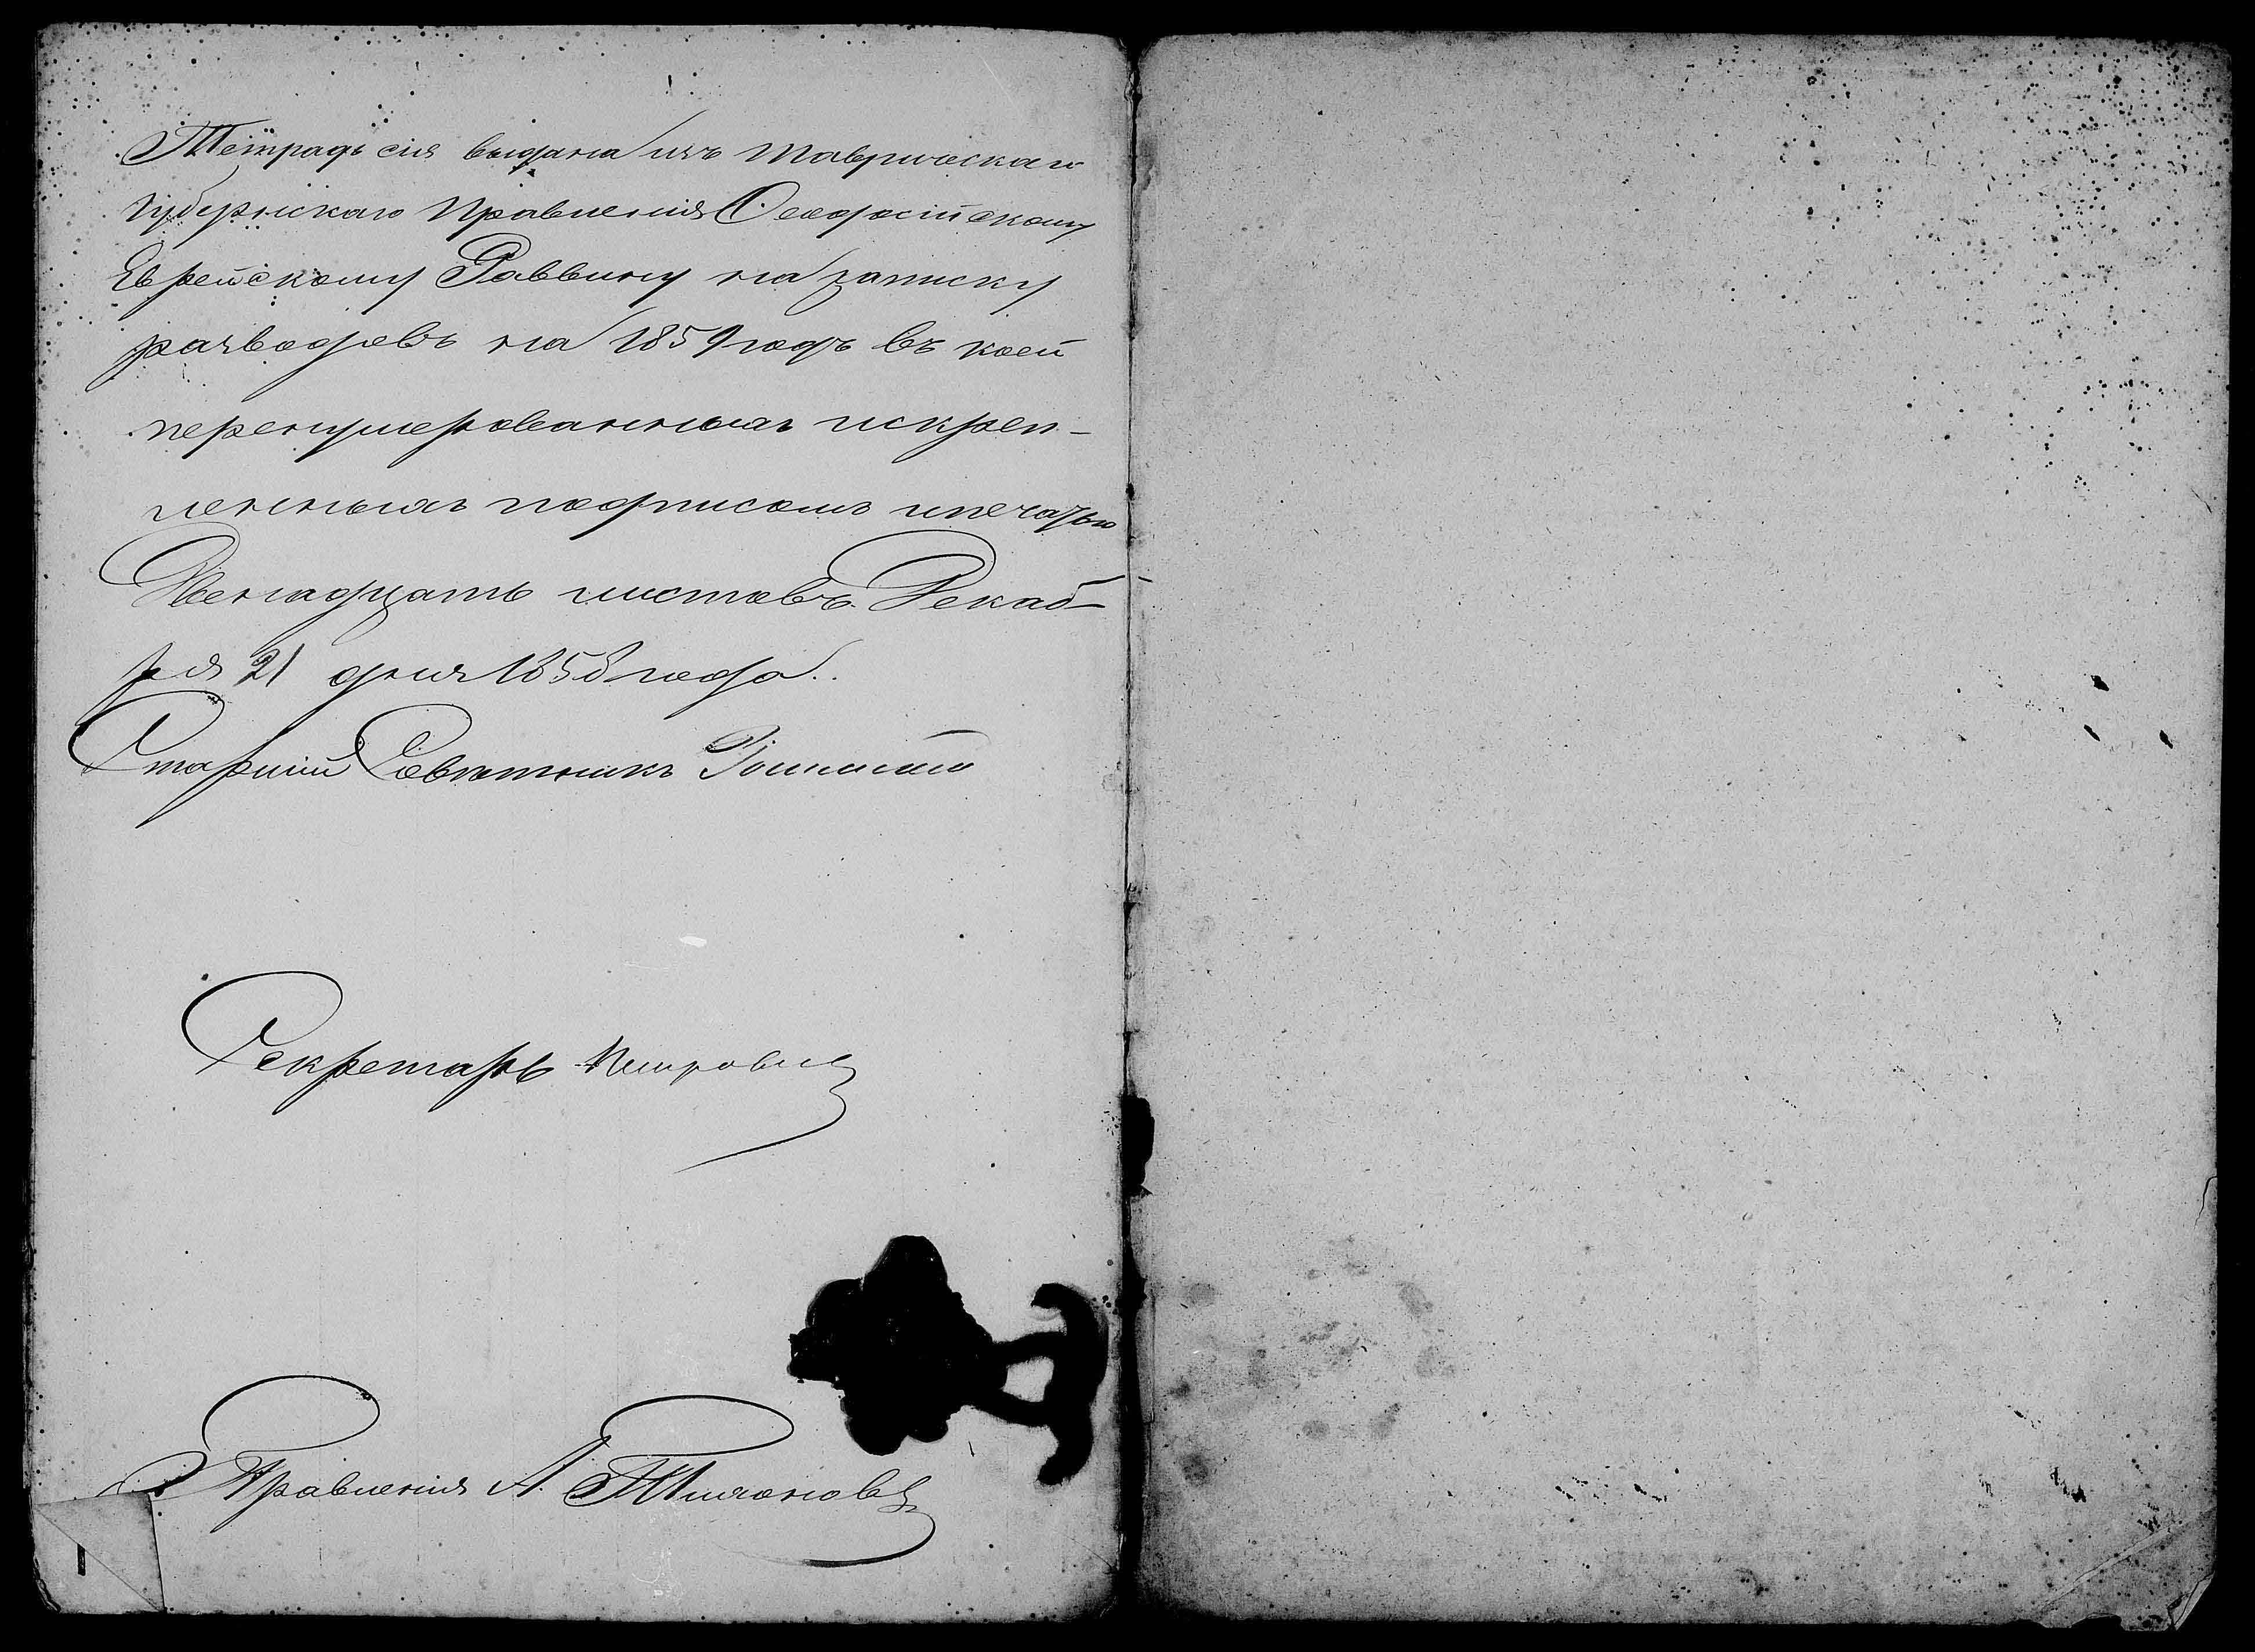 Тетрадь сія выдана изъ Таврическаго
Губернскаго Правленія Ѳеодосійскому
Еврейскому Раввину на записку
разводовъ на 1859 годъ въ коей
перенумерованныхъ искреп-
ленныхъ подписомъ ипечатью
Двенадцать листовъ. Декаб-
ря 21 дня 1858 года.
Старшій Совѣтникъ
Секретарь Петровичъ
Правленія А. Тихоновъ
1